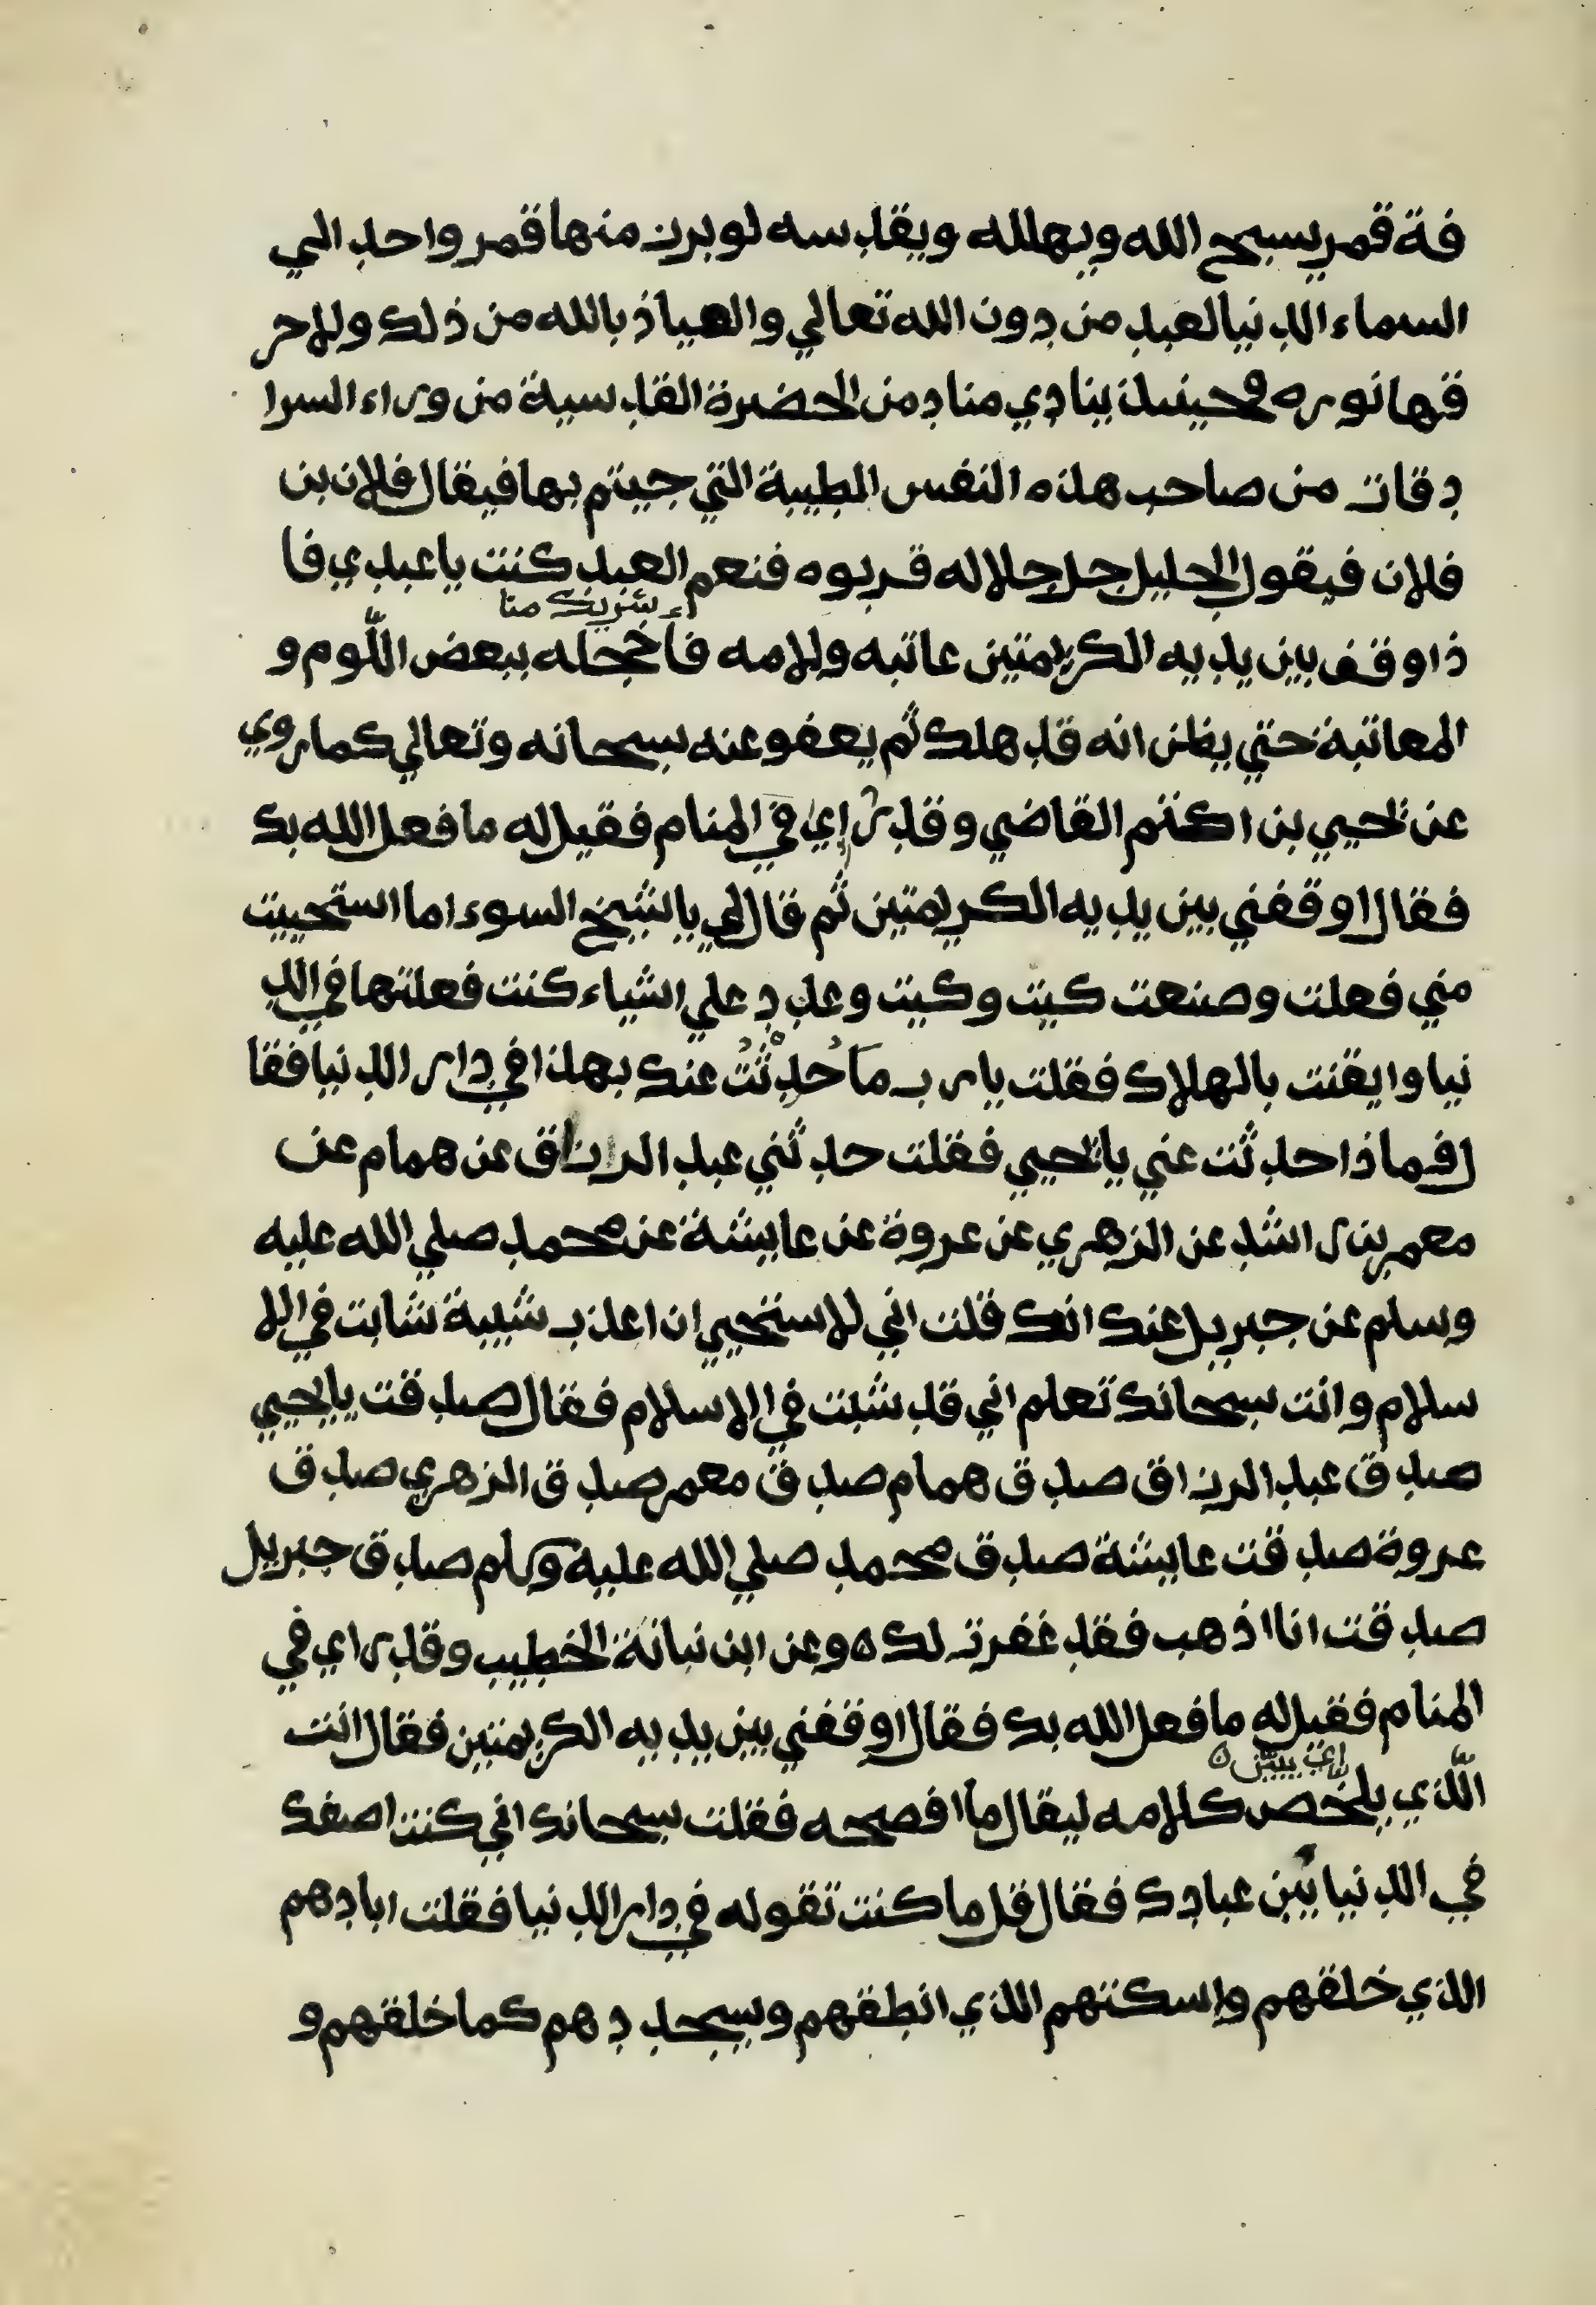 فة قمر يسبح الله ويهلله ويقدسه لو برز منها قمر واحد الي
السماء الدنيا لعبد من دون الله تعالي والعياذ بالله من ذلك ولاحر
قها نوره فحينيذ ينادي مناد من الحضرة القدسية من وراء السرا
دقات من صاحب هذه النفس المطيبة التي جيتم بها فيقال فلان بن
فلان فيقول الجليل جل جلاله قربوه فنعم العبد كنت يا عبدي فا
ذا وقف بين يديه الكريمتين عاتبه ولامه فأخجله ببعض اللّوم و
المعاتبة حتي يظن انه قد هلك ثم يعفو عنه سبحانه وتعالي كما روي
عن يحيي بن اكثم القاضي وقد راي في المنام فقيل له ما فعل الله بك
فقال اوقفني بين يديه الكريمتين ثم قال لي يا شيخ السوء اما استحييت
مني فعلت وصنعت كيت وكيت وعدد علي اشياء كنت فعلتها في الد
نيا وايقنت بالهلاك فقلت يا رب مَا حُدِّثْتُ عنك بهذا في دار الدنيا فقا
ل فما ذا حدثت عني يا يحيي فقلت حدثني عبد الرزاق عن همام عن
معمر بن راشد عن الزهري عن عروة عن عايشة عن محمد صلي الله عليه
وسلم عن جبريل عنك انك قلت اني لاستحيي ان اعذب شيبة شابت في الا
سلام وانت سبحانك تعلم اني قد شبت في الاسلام فقال صدقت يا يحيي
صدق عبد الرزاق صدق همام صدق معمر صدق الزهري صدق
عروة صدقت عايشة صدق محمد صلي الله عليه وسلم صدق جبريل
صدقت انا اذهب فقد غفرت لك ه وعن ابن نباتة الخطيب وقد راي في
المنام فقيل له ما فعل الله بك فقال اوقفني بين يديه الكريمتين فقال انت
اي يبين ه
الّذي يلخص كلامه ليقال ما افصحه فقلت سبحانك اني كنت اصفك
في الدنيا بين عبادك فقال قل ما كنت تقوله في دار الدنيا فقلت ابادهم
الذي خلقهم واسكتهم الذي انطقهم وسيجددهم كما خلقهم و